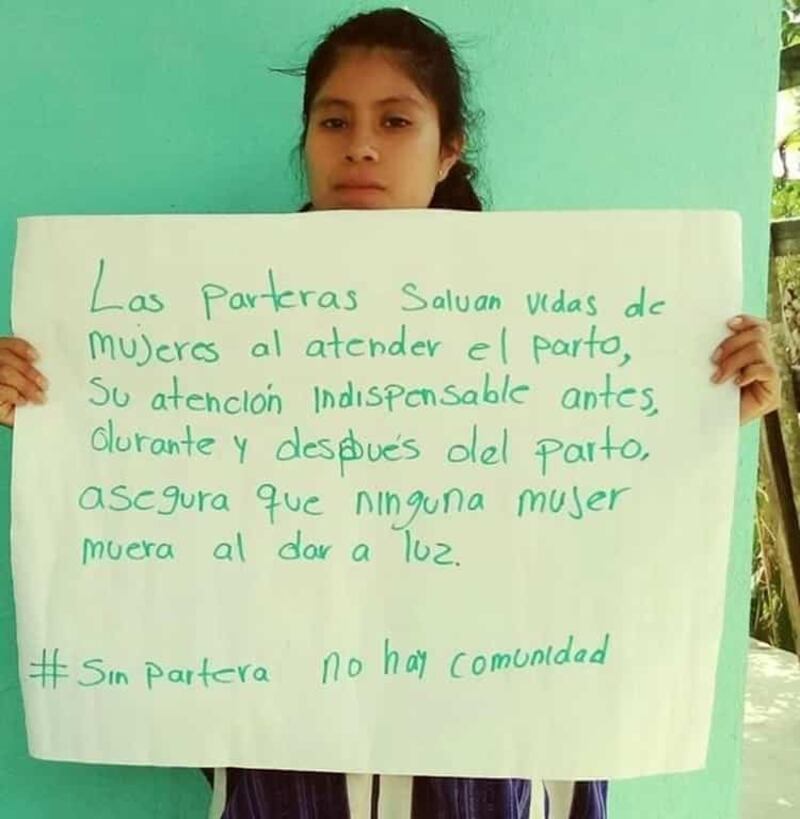 Las parteras salvan vidas de
mujeres al atender el parto,
su atención indispensable antes,
durante y después del parto,
asegura que ninguna mujer
muera al dar a luz.
# Sin partera no hay comunidad